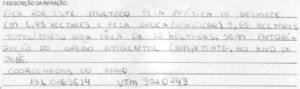 7-DESCRIÇÃO DA INFRAÇÃO
FICA POR ESTE MULTADO PELA PRÁTICA DE DESMATE
EM 6,45 HECTARES E PELA BROCA (         ) 5,55 HECTARES
TOTALIZANDO UMA ÁREA DE 12 HECTARES, SEM AUTORI
ZAÇÃO DO ORGÃO AMBIENTAL COMPETENTE, NO ANO DE
2016.
COORDENADAS DO
19L 0269614 UTM 9020243